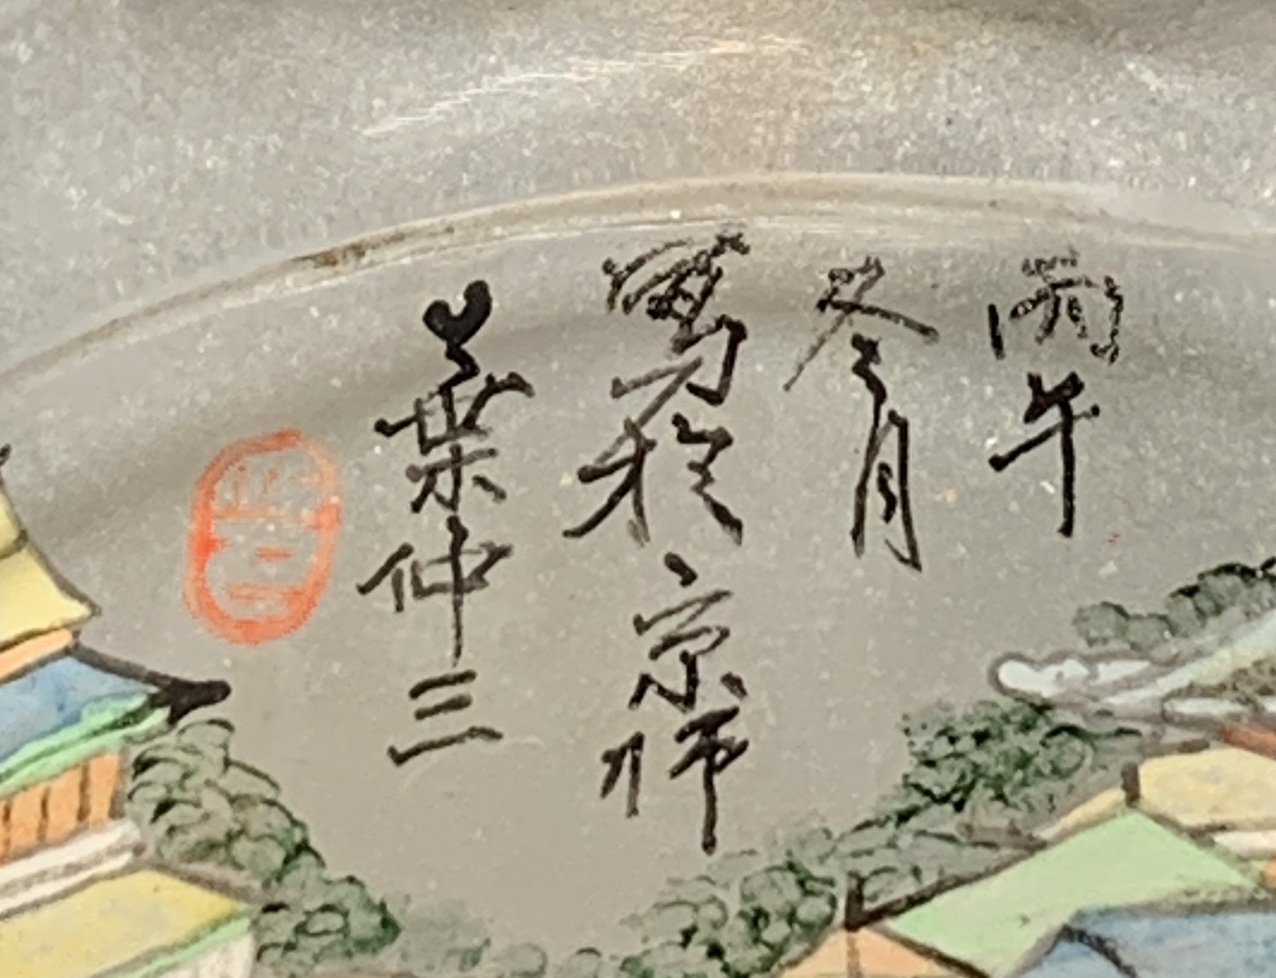 丙午
冬月
寫於京師
葉仲三